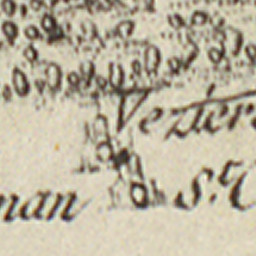 Vezier
nan
S.t C